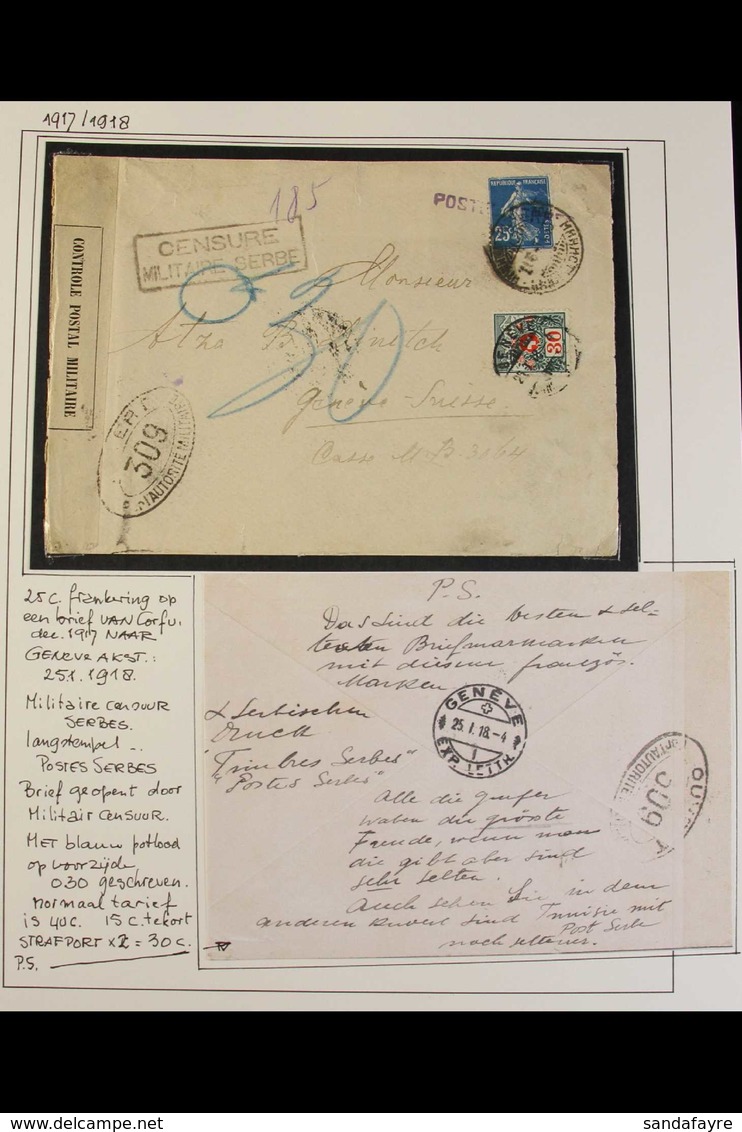 1917/1918
185
POSTES
REPUBLIQUE FRANÇAISE
25c
POSTES
CENSURE
MILITAIRE SERBE
Monsieur
CONTROLE POSTAL MILITAIRE
030
GENÈVE
30
Genève-Suisse.
309
L'AUTORITÉ MILITAIRE
25 c. frankering op
een brief VAN Corfu.
dec. 1917 NAAR
GENEVE AKST.:
25.1.1918.
Militaire censuur
SERBES.
langstempel
POSTES SERBES
Brief geopent door
Militair censuur.
MET blauw potlood
op voorzijde
030 geschreven.
normaal tarief
is 40c. 15 c. tekort
STRAFPORT x2 = 30 c.
P.S.
P.S.
Das sind die besten & sel-
testen Briefmarmarken
mit diesem französ.
Marken
& Serbischen
Druck
"Timbres Serbes"
"Postes Serbes"
GENÈVE
25.I.18.-4
1
EXP. LETTR.
Alle die
haben die grösste
Freude, wenn man
die gibt aber sind
sehr selten.
Auch sehen Sie, in dem
anderen Kuvert sind Tunisie mit
Post Serbe
noch seltener.
OUV
309
L'AUTORITÉ
andafayre